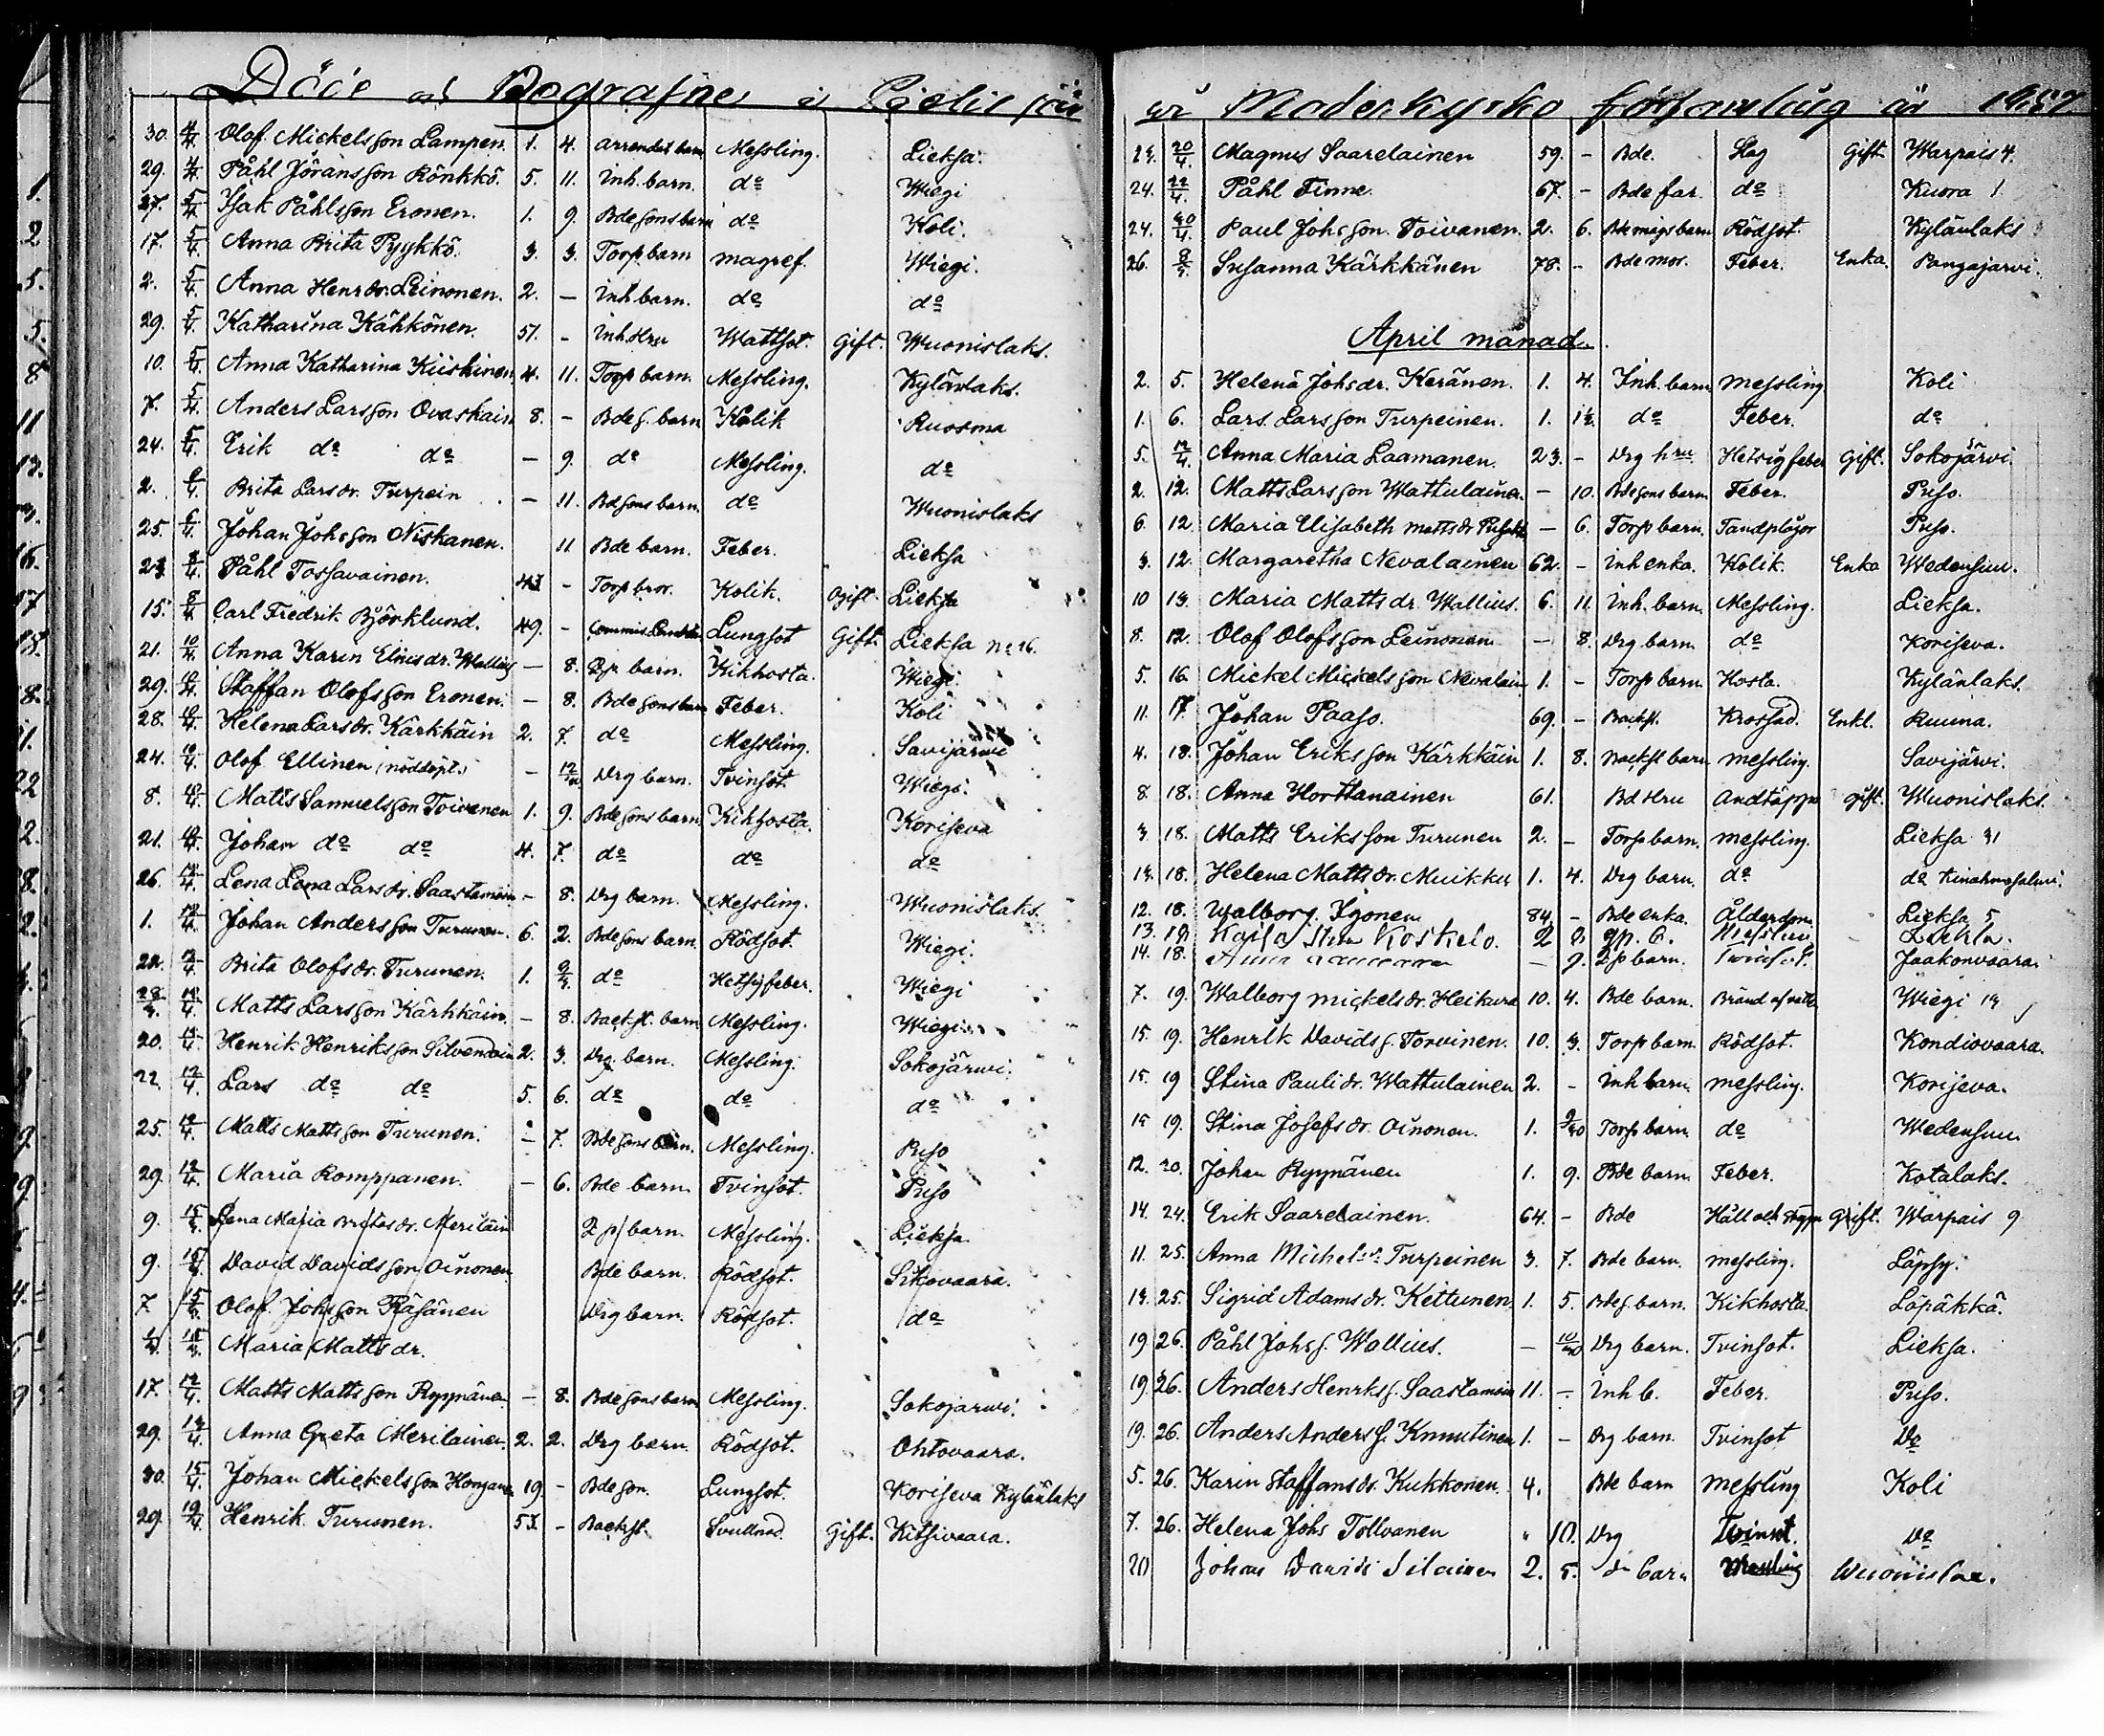 Döde och Begrafne i
30. 4/4. Olof Mickelsson Lampen. 1. 4. Messling. Lieksa.
29. 4/4. Påhl Jöransson Rönkkö. 5. 11. Inh. barn. do Wiegi
27. 5/4. Isak Påhlsson Eronen. 1. 9. Bdesonsbarn do Koli.
17. 5/4. Anna Brita Pyykkö. 3. 3. Torp barn magref. Wiegi.
2. 5/4. Anna Henrdr. Leinonen. 2. – Inh barn. do do
29. 5/4. Katharina Kähkönen. 51. – Inh Hru Wattsot. Gift. Wuonislaks.
10. 5/4. Anna Katharina Kiiskinen 4. 11. Torp barn. Messling. Kylänlaks.
7. 5/4. Anders Larsson Ovaskain 8. – Bde s. barn Kolik Ruosma
24. 5/4. Erik do do – 9. do Messling. do
2. 6/4. Brita Larsdr. Turpein – 11. Bdsonsbarn. do Wuonislaks
25. 6/4. Johan Johsson Niskanen. 11 Bde barn. Feber. Lieksa
8/4. Påhl Tossavainen. – Torp bror. Kolik. Ogift. Lieksa
15. 8/4. Carl Fredrik Björklund. 49. – Lungsot Gift. Lieksa No 16.
21. 10/4. Anna Karin – 8. barn. Kikhosta. Wiegi.
29. Staffan Olofsson Eronen. – 8. Bdesonsbarn Feber. Koli
28. Helena Larsdr. Kärkkäin 2. 7. do Messling. Savijärwi
24. 10/4. Olof Ellinen (nöddöpt.) – Drg barn. Tvinsot. Wiegi.
8. Matts Samuelsson Toivanen 1. 9. Bdesonsbarn Kikhosta. Koriseva
21. Johan do do 4. 7. do do do
26. 12/4. Lena Lena Larsdr. Saastamoin – 8. Drg barn. Messling. Wuonislaks.
1. 12/4. Johan Andersson Turunen. 6. 2. Bdesonsbarn. Rödsot. Wiegi.
22. 12/4. Brita Olofsdr. Turunen. 1. do Wiegi
Matts Larsson Kärkkäin. – 8. Backst. barn Messling. Wiegi.
20. Henrik Henriksson 2. 3. Drg. barn. Messling. Sokojärwi.
22. 12/4. Lars do do 5. 6. do do do
25. 12/4. Matts Mattsson Turunen. – 7. Bdesonsbarn. Messling. Puso
29. 12/4. Maria Romppanen. – 6. Bde barn. Tvinsot. Puso
9. Lena Maria Britasdr. Meriläin barn. Messling. Lieksa.
9. David Davidsson Oinonen. Bde barn. Rödsot. Sikovaara.
7. Olof Johsson Räsänen Drg barn. Rödsot. do
Maria Mattsdr.
17. 12/4. Matts Mattsson Ryynänen – 8. Bdesonsbarn Messling. Sokojärwi.
29. 14/4. Anna Greta Merilainen. 2. 2. Drg barn. Rödsot. Ohtovaara.
30. 15/4. Johan Mickelsson 19. – Bdeson. Lungsot. Koriseva Kylänlaks
29. 19/4. Henrik Turunen. – Backst. Gift. Kitsivaara.
Moderkyrko församling år 1857.
20/4. Magnus Saarelainen 59. – Bde. Slag Gift. Warpais 4.
24. 22/4. Påhl Finne. 67. – Bde far. do Kuora 1.
24. Paul Johsson. Toivanen. 2. 6. Bdemågsbarn Rödsot. Kylänlaks
26. Susanna Kärkkänen 78. – Bde mor. Feber. Enka. Pangajärwi.
April månad.
2. 5. Helena Johsdr. Keränen. 1. 4. Inh. barn messling. Koli
1. 6. Lars Larsson Turpeinen. 1. do Feber. do
5. 12/4. Anna Maria Laamanen. 23. – Drg hru Hetsigfeber Gift. Sokojärwi.
2. 12. Matts Larsson Wattulainen. – 10. Bdesonsbarn Feber. Puso.
6. 12. Maria Elisabeth Mattsdr – 6. Torp barn. Tandplågor Puso.
3. 12. Margaretha Nevalainen 62. – Inh enka. Kolik. Enka Wedensuu.
10 13. Maria Mattsdr. Wallius. 6. 11. Inh. barn. Messling. Lieksa.
8. 12. Olof Olofsson Leinonen – 8. Drg barn. do Koriseva.
5. 16. Mickel Mickelsson Nevalain 1. – Torp barn. Hosta. Kylänlaks.
11. 17. Johan Paaso. 69. – Backst. Krossad. Enkl. Ruuna.
4. 18. Johan Eriksson Kärkkäin 1. 8. Backst barn messling. Savijärvi.
8. 18. Anna Horttanainen 61. Bd Hru Andtäppa gift. Wuonislaks.
3. 18. Matts Eriksson Turunen 2. – Torp barn. messling. Lieksa 31
14. 18. Helena Mattsdr. Muikku 1. 4. Drg barn. do do
12. 18. Walborg 84. – Bde enka. Ålderdom Lieksa 5
13. 19. Kaisa Stina Koskelo. 2
14. 18. – 9. barn. Jaakonvaara.
7. 19. Walborg Mickelsdr. 10. 4. Bde barn. Wiegi
15. 19. Henrik Davids s. Torvinen. 10. 3. Torp barn. Rödsot. Kondiovaara.
15. 19 Stina Paulidr. Wattulainen 2. – Inh barn. messling. Koriseva.
15 19. Stina Josefsdr. Oinonen. 1. Torp barn. do Wedensuu.
12. 20. Johan Ryynänen 1. 9. Bde barn. Feber. Kotalaks.
14. 24. Erik Saarelainen. 64. – Bde Håll och Gift. Warpais 9
11. 25. Anna Michelsdr. Turpeinen 3. 7. Bde barn. messling. Läpsy.
14. 25. Sigrid Adamsdr. Kettunen 1. 5. Bde s. barn. Kikhosta. Löpäkkä.
19. 26. Påhl Johs s. Wallius. – Drg barn. Tvinsot. Lieksa.
19. 26. Anders Henrks s. Saastamoin 11. – Inh b. Feber. Puso.
19. 26. Anders Anders s. Knuutinen 1. – Drg barn. Tvinsot Do
5. 26. Karin Staffansdr. Kukkonen 4. Bde barn messling Koli
7. 26. Helena Johs Tollvanen 10. Drg Tvinsot. Do
20 Johan Davids 2. 5. barn Messling